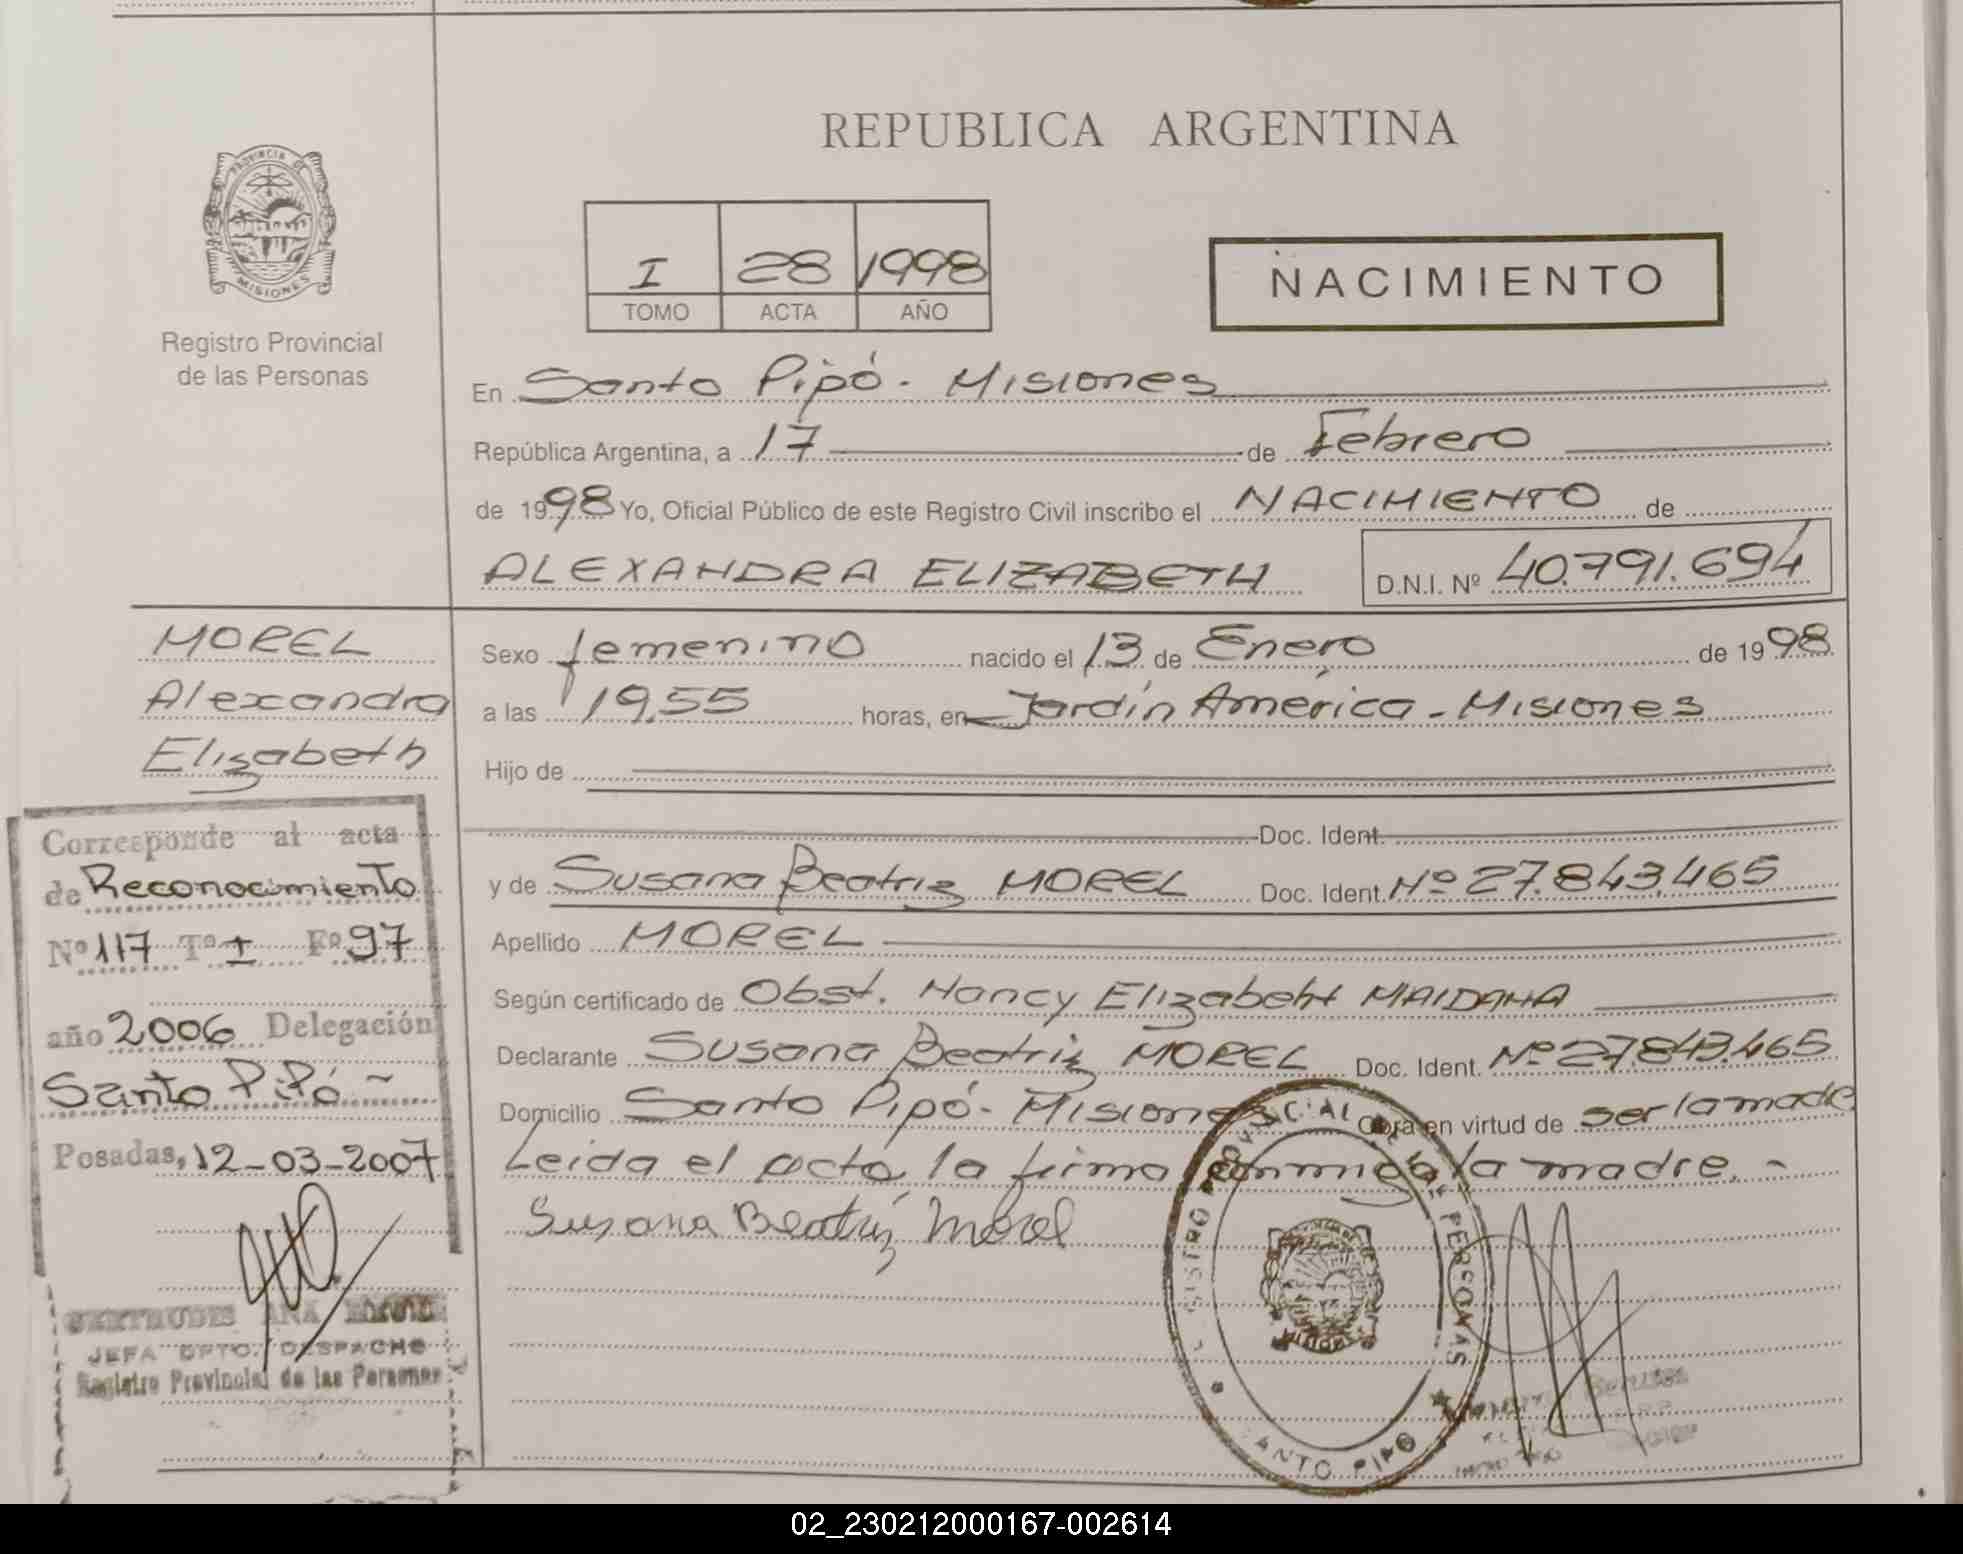 REPUBLICA ARGENTINA
PROVINCIA DE
MISIONES
Registro Provincial
de las Personas
I 28 1998
TOMO ACTA AÑO
NACIMIENTO
En Santo Pipó - Misiones
República Argentina, a 17 de Febrero
de 1998 Yo, Oficial Público de este Registro Civil inscribo el NACIMIENTO de
ALEXANDRA ELIZABETH D.N.I. Nº 40.791.694
MOREL
Alexandra
Elizabeth
Sexo femenino nacido el 13 de Enero de 1998
a las 19,55 horas, en Jardín América - Misiones
Hijo de
Doc. Ident.
y de Susana Beatriz MOREL Doc. Ident. Nº 27.843.465
Apellido MOREL
Según certificado de Obst. Nancy Elizabeht MAIDANA
Declarante Susana Beatriz MOREL Doc. Ident. Nº 27.843.465
Domicilio Santo Pipó - Misiones Obra en virtud de ser la madre
Leida el acta, la firma conmigo la madre. -
Susana Beatriz Morel
Corresponde al acta
de Reconocimiento
Nº 117 Tº I Fº 97
año 2006 Delegación
Santo Pipó -
Posadas, 12-03-2007
GERTRUDIS ANA
JEFA DPTO. DESPACHO
Registro Provincial de las Personas
REGISTRO PROVINCIAL DE LAS PERSONAS
SANTO PIPO
MISIONES
02_230212000167-002614